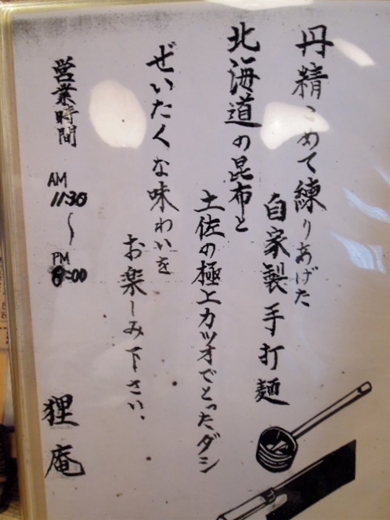 丹精こめて練りあげた
自家製手打麺
北海道の昆布と
土佐の極上カツオでとったダシ
ぜいたくな味わいを
お楽しみ下さい。
営業時間
AM
11:30
〜
PM
8:00
狸庵